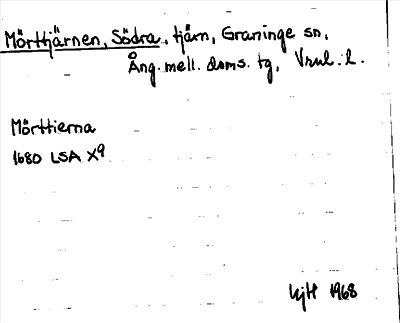 Mörttjärnen, Södra, tjärn, Graninge sn,
Ång. mell. doms. tg,
Mörttierna
1680 LSA X9
1968